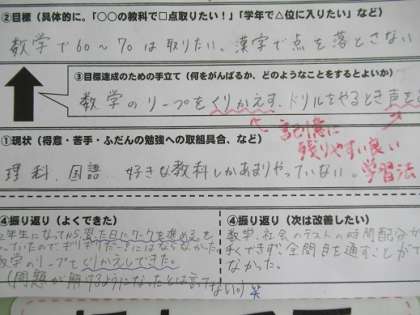 ②目標(具体的に。「○○の教科で□点取りたい!」「学年で△位に入りたい」など)
数学で60~70は取りたい。漢字で点を落とさない
③目標達成のための手立て (何をがんばるか、どのようなことをするとよいか)
数学のリープをくりかえす、ドリルをやるとき声を
残りやすい良い
学習法
①現状(得意・苦手・ふだんの勉強への取組具合、など)
理科、国語 好きな教科しかあまりやっていない。
④振り返り(よくできた)
年生になってから、翌日にワークを進める
数学のリープをくりかえしできた。
(問題が解けるようになったとは言ってない) 笑
④振り返り(次は改善したい)
数学、社会のテストの時間配分が
くできず、全問目を通すことがで
なかった。